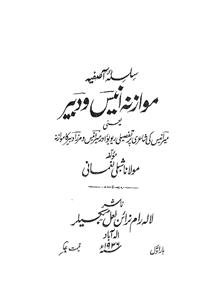 سلسلۂ آصفیہ
موازنۂ انیس و دبیر
یعنی
میر انیس کی شاعری پر تفصیلی ریویو اور میر انیس و مرزا دبیر کا موازنہ
مؤلفہ
مولانا شبلی نعمانی
ناشر
لالہ رام نرائن لعل بکسیلر
الہ آباد
۱۹۳۶ء
بار اول
قیمت